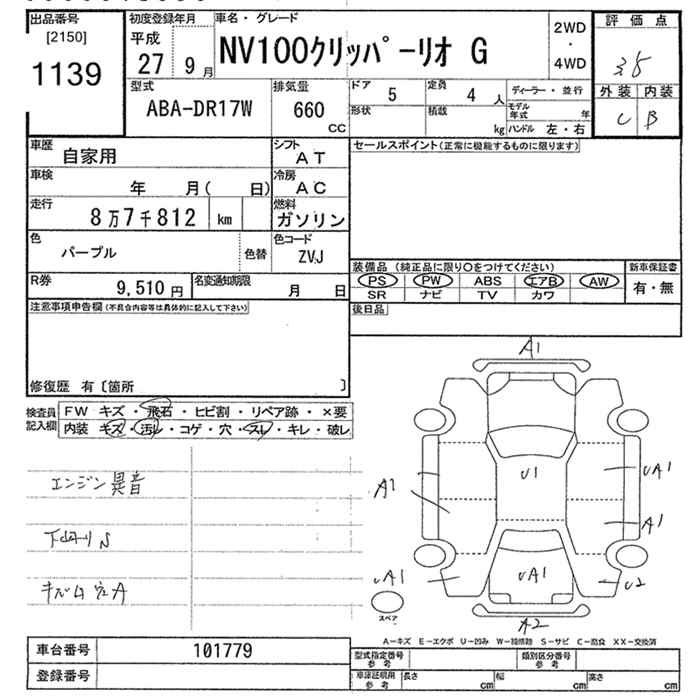 出品番号
[2150]
1139
初度登録年月
平成
27 9 月
車名・グレード
NV100クリッパーリオ G
2WD
・
4WD
評価点
外装 内装
C B
型式
ABA-DR17W
排気量
660
CC
ドア
5
定員
4 人
形状
積載
kg
ディーラー・並行
モデル年式 年
ハンドル 左・右
車歴
自家用
シフト
AT
車検
年 月( 日)
冷房
AC
走行
8万7千812 km
燃料
ガソリン
色
パープル
色替
色コード
ZVJ
R券
9,510 円
名変通知期限
月 日
セールスポイント(正常に機能するものに限ります)
装備品 (純正品に限り○をつけてください)
新車保証書
PS PW ABS エアB AW
SR ナビ TV カワ
有・無
後日品
注意事項申告欄(不具合内容等は具体的に記入して下さい)
修復歴 有〔箇所 〕
検査員
記入欄
FW キズ・飛石・ヒビ割・リペア跡・×要
内装 キズ・汚レ・コゲ・穴・スレ・キレ・破レ
エンジン異音
下回りS
A1
U1
UA1
A1
A1
UA1
UA1
U2
A2
スペア
A-キズ E-エクボ U-凹み W-補修跡 S-サビ C-腐食 XX-交換済
車台番号
101779
登録番号
型式指定番号
参考
類別区分番号
参考
車庫証明用
参考
長さ cm
幅 cm
高さ cm